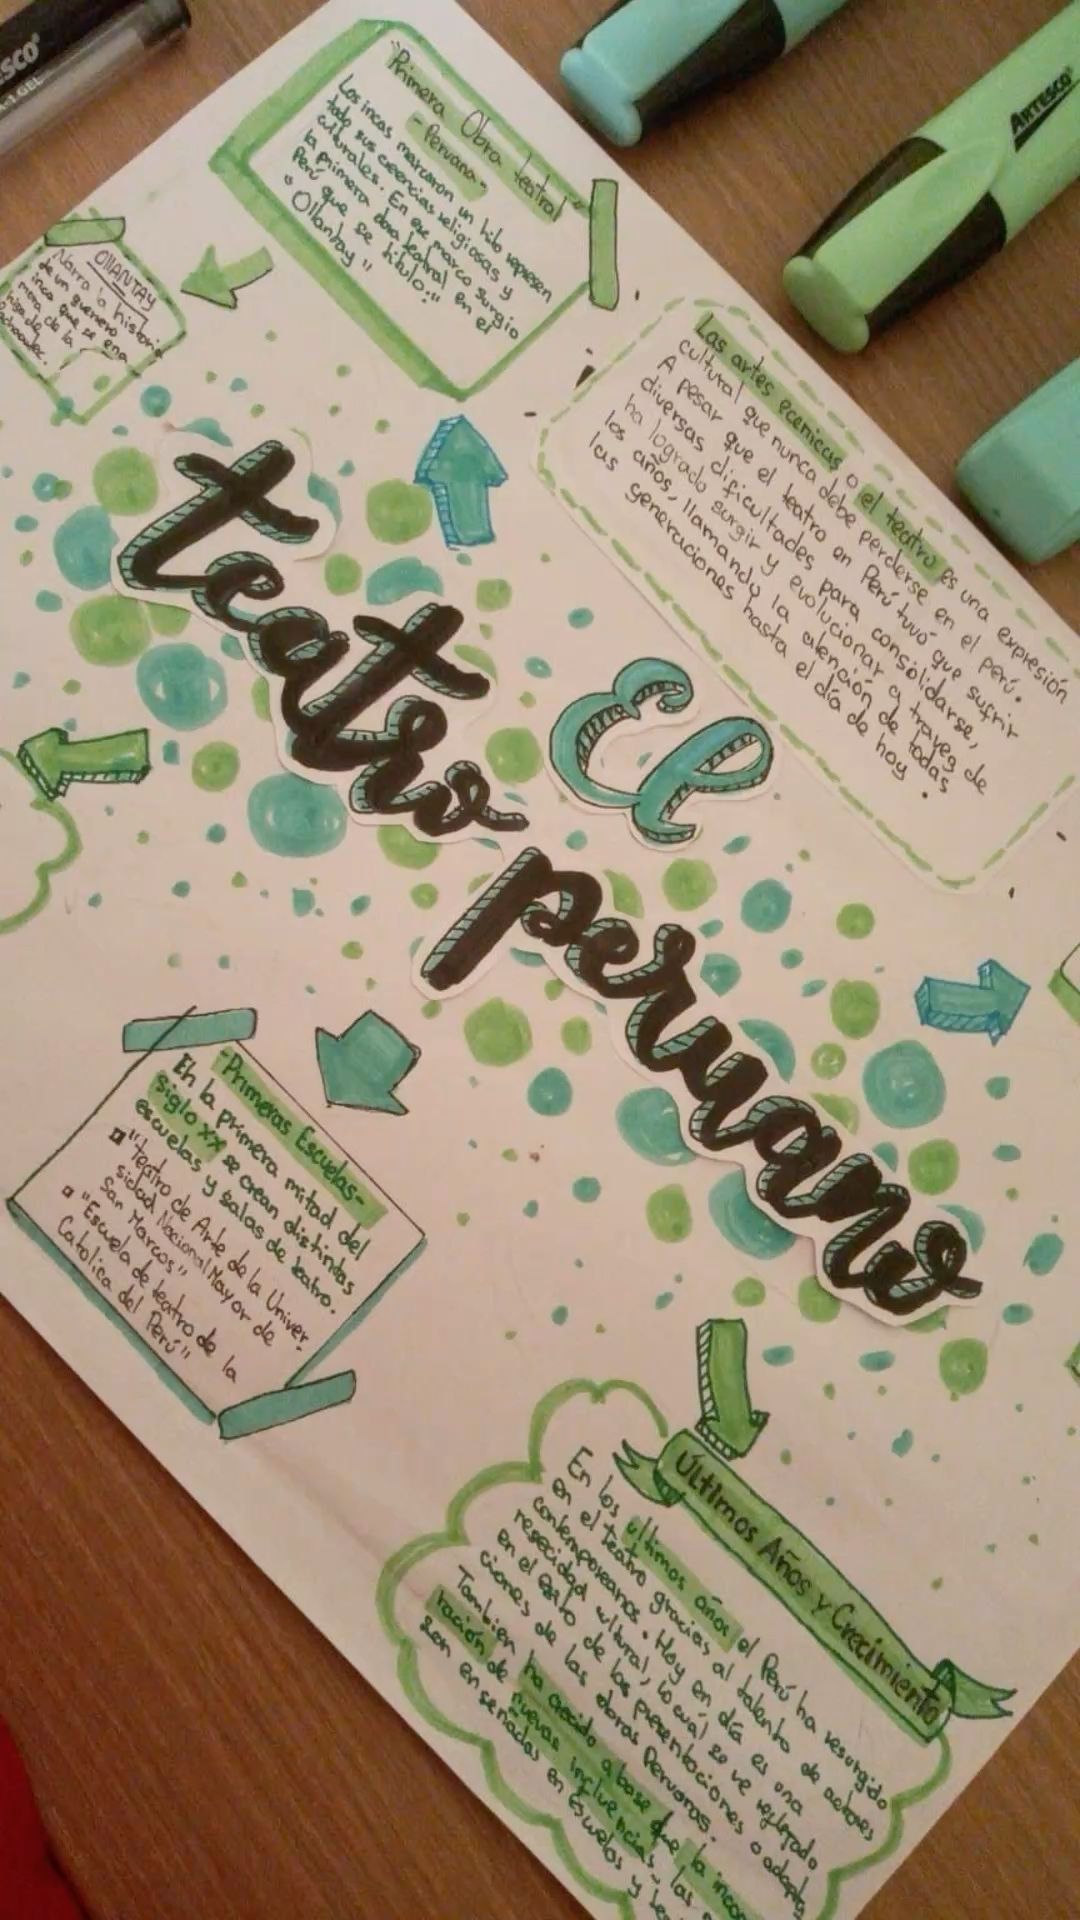 ESCO
1.GEL
ARTESCO
"Primera Obra teatral"
-Peruana-
Los incas marcaron un hito
todo sus creencias religiosas y
culturales. En ese marco surgio
la primera obra teatral en el
Perú que se titulo:"
"Ollantay"
OllANTAY
Narra la historia
de un guerrero
inca que se ena
mora de la
hija de
Las artes ecenicas o el teatro es una expresión
cultural que nunca debe perderse en el perú.
A pesar que el teatro en Perú tuvó que sufrir
diversas dificultades para consolidarse,
ha logrado surgir y evolucionar a traves de
los años, llamando la atención de todas
las generaciones hasta el día de hoy.
El
teatro
peruano
-Primeras Escuelas-
En la primera mitad del
siglo XX se crean distintas
escuelas y salas de teatro.
"Teatro de Arte de la Univer-
sidad Nacional Mayor de
San Marcos"
"Escuela de teatro de la
Catolica del Perú"
Últimos Años y Crecimiento
En los ultimos años el Perú ha resurgido
en el teatro gracias al talento de actores
contemporeanos. Hoy en día es una
cultural, lo cuál se ve reflejado
en el exito de las presentaciones o adapta
ciones de las obras Peruanas.
Tambien ha crecido a base que la incor
ración de nuevas influencias, las
son enseñadas en Escuelas y